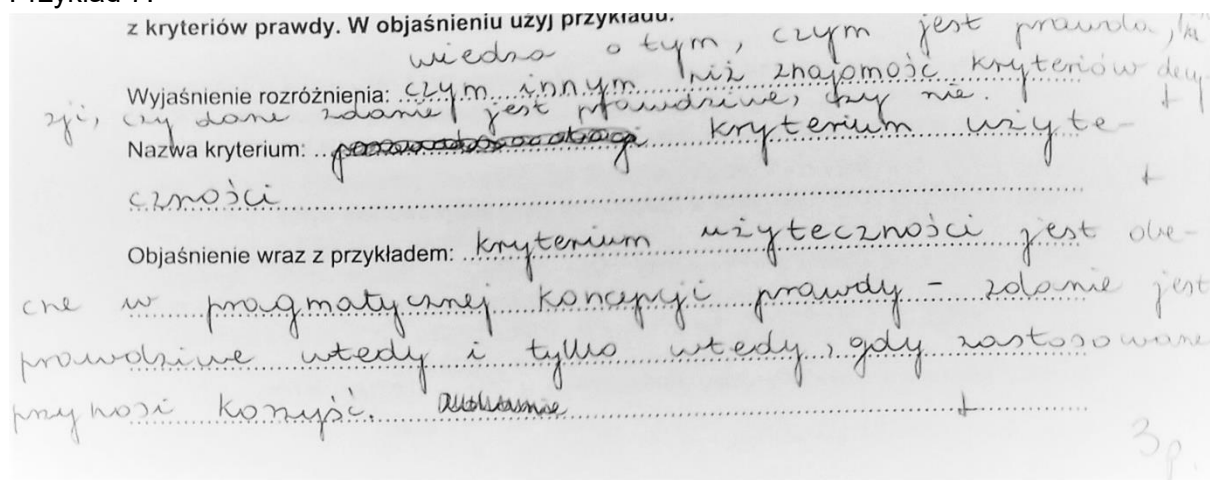 z kryteriów prawdy. W objaśnieniu użyj przykładu.
wiedza o tym, czym jest prawda, jest
Wyjaśnienie rozróżnienia: czym innym niż znajomość kryteriów decy-
zji, czy dane zdanie jest prawdziwe, czy nie. +
Nazwa kryterium: kryterium użyte-
czności +
Objaśnienie wraz z przykładem: kryterium użyteczności jest obe-
cne w pragmatycznej koncepcji prawdy - zdanie jest
prawdziwe wtedy i tylko wtedy, gdy zastosowane
przynosi korzyść. +
3p.